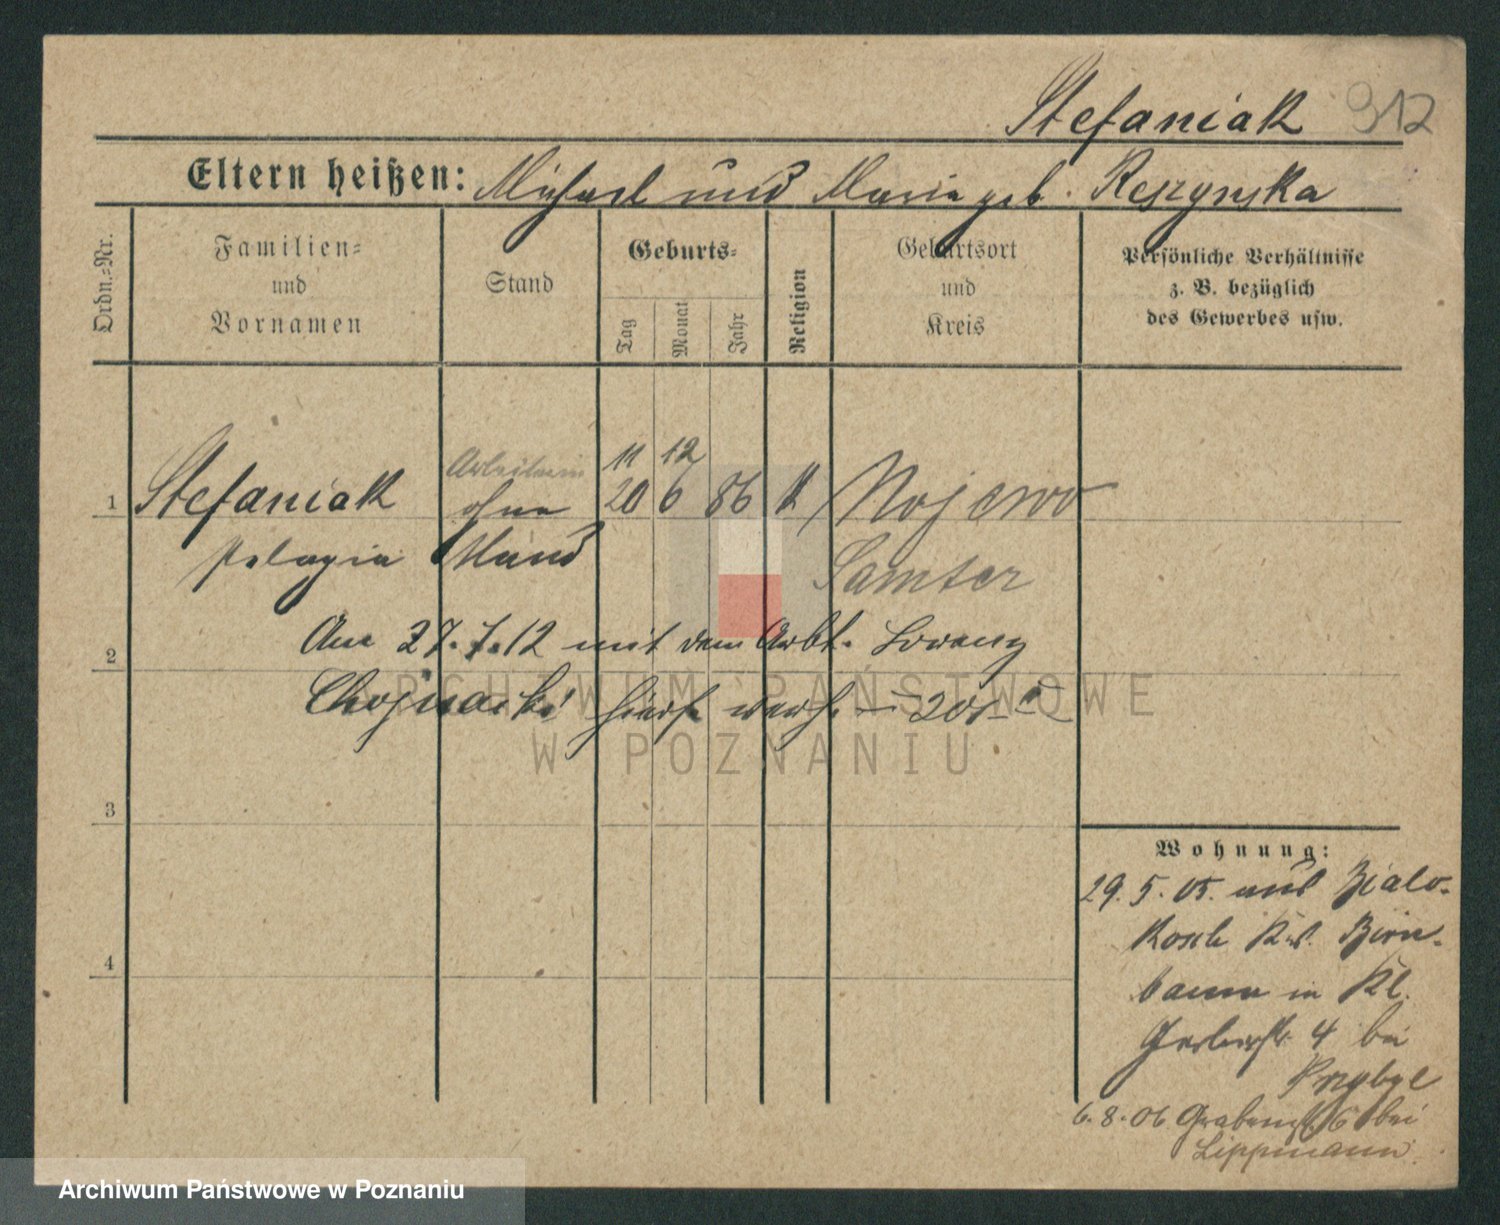 Stefaniak 312
Eltern heißen: Michael und Maria geb. Reszynska
Ordn.=Nr.
Familien= und Vornamen
Stand
Geburts=
Tag
Monat
Jahr
Religion
Geburtsort und Kreis
Persönliche Verhältnisse z. B. bezüglich des Gewerbes usw.
Arbeiterin 11 12
1 Stefaniak ohne 20 6 86 k Nojewo
Pelagia Stand Samter
Am 27.7.12 mit dem Arbt. Lorenz
2
Chojnacki hier verh.
ARCHIWUM PAŃSTWOWE
W POZNANIU
3
4
Wohnung:
29.5.05. aus Bialo-
kosch Krs. Birn-
baum in Kl.
Gerberstr. 4 bei
Przybyl
6.8.06 Grabenstr. 6 bei
Lippmann.
Archiwum Państwowe w Poznaniu